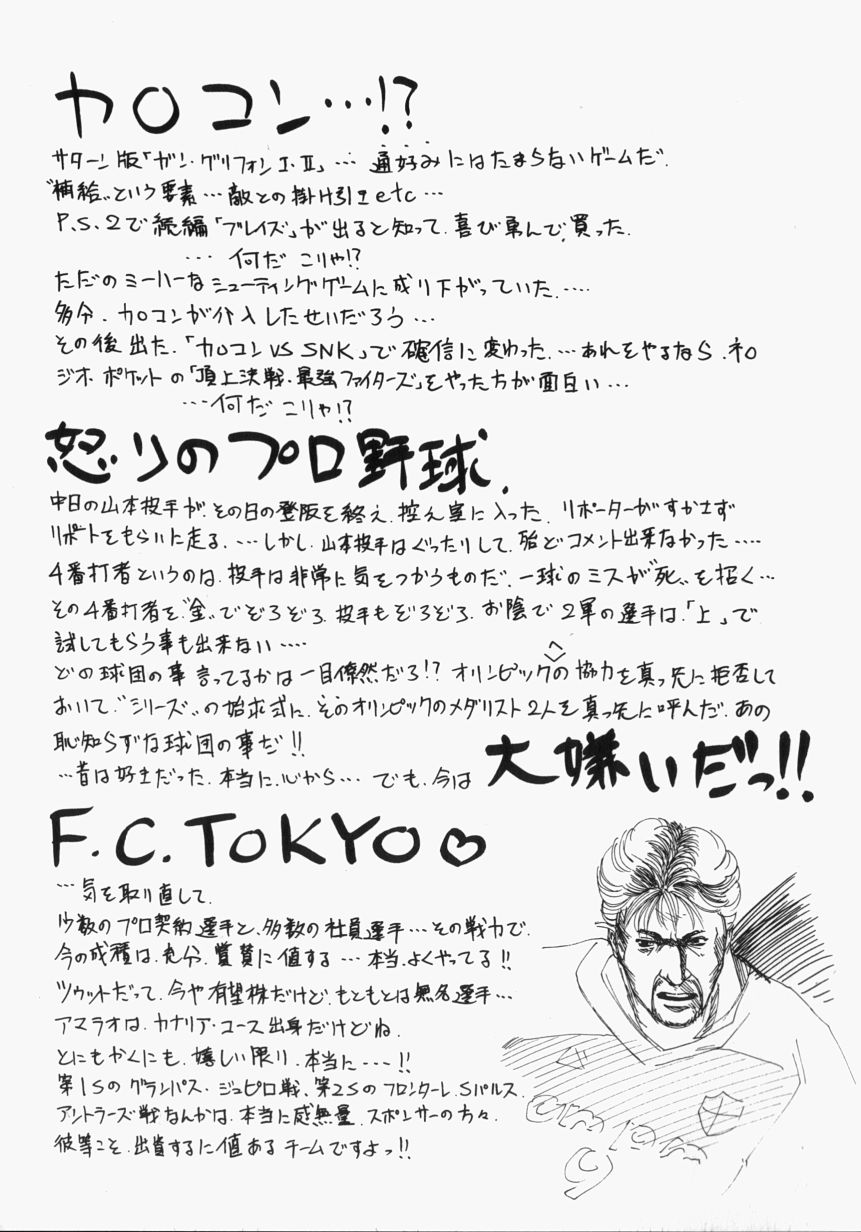 カロコン…!?
サターン版「ガン・グリフォンI・II」… 通好みにはたまらないゲームだ.
"補給"という要素…敵との掛け引きetc…
P.S.2で続編「ブレイズ」が出ると知って.喜び勇んで.買った.
…何だ こりゃ!?
ただのミーハーなシューティングゲームに成り下がっていた.….
多分.カロコンが介入したせいだろう…
その後出た.「カロコンVS SNK」で確信に変わった.…あれをやるなら.ネロ
ジオ.ポケットの「頂上決戦.最強ファイターズ」をやった方が面白い…
…何だ こりゃ!?
怒りのプロ野球.
中日の山本投手が.その日の登版を終え.控え室に入った.リポーターがすかさず
リポートをもらいに走る.…しかし.山本投手はぐったりして.殆どコメント出来なかった….
4番打者というのは.投手は非常に気をつかうものだ.一球のミスが"死"を招く…
その4番打者を"金"でぞろぞろ.投手もぞろぞろ.お陰で2軍の選手は.「上」で
試してもらう事も出来ない….
どの球団の事言ってるかは一目僚然だろ!?オリンピックへの協力を真っ先に拒否して
おいて."シリーズ"の始求式に.そのオリンピックのメダリスト2人を真っ先に呼んだ.あの
恥知らずな球団の事だ!!
…昔は好きだった.本当に.心から…でも.今は 大嫌いだっ!!
F.C.TOKYO♡
…気を取り直して.
少数のプロ契約選手と.多数の社員選手…その戦力で.
今の成種は.充分.賞賛に値する…本当.よくやってる!!
ツゥットだって.今や有望株だけど.もともとは無名選手…
アマラオは.カナリア・ユース出身だけどね.
とにもかくにも.嬉しい限り.本当に…!!
第1Sのグランパス・ジュビロ戦、第2Sのフロンターレ.Sパルス.
アントラーズ戦なんかは.本当に感無量.スポンサーの方々.
彼等こそ.出資するに値あるチームですよっ!!
9